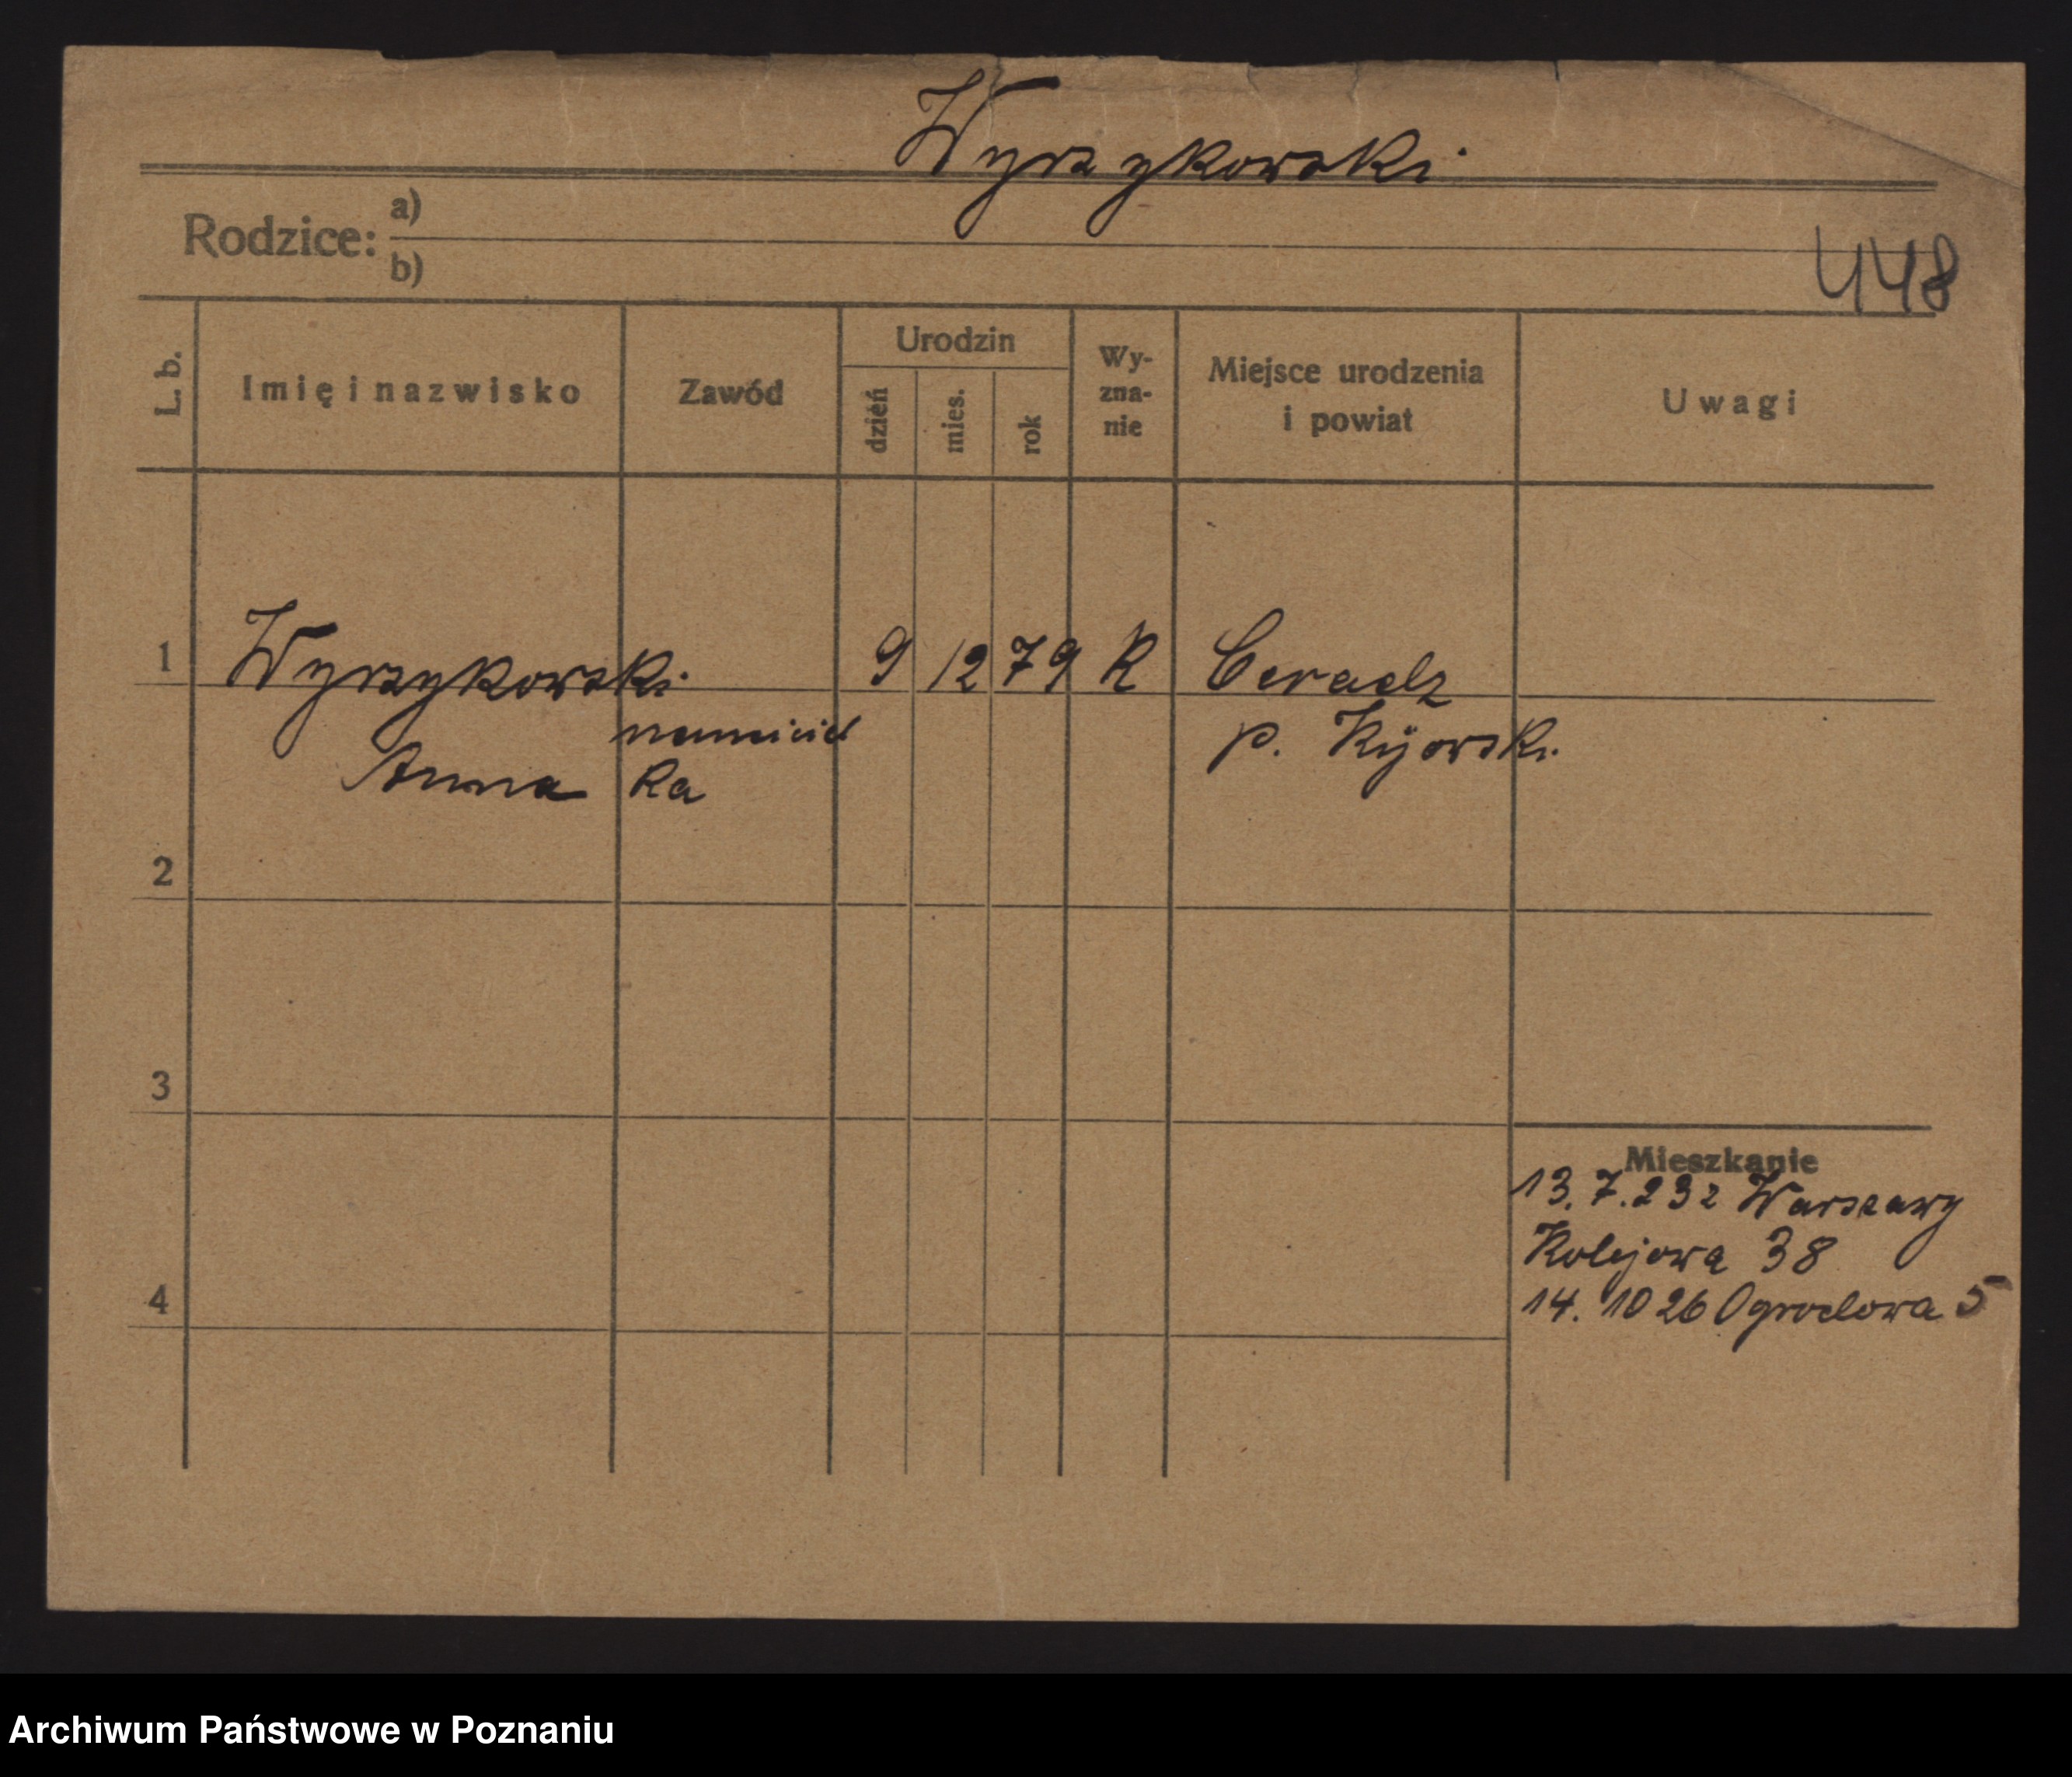 Wyrzykowski
Rodzice: a)
b)
448
L. b.
Imię i nazwisko
Zawód
Urodzin
dzień
mies.
rok
Wy-
zna-
nie
Miejsce urodzenia
i powiat
Uwagi
1 Wyrzykowski 9 12 79 K Ceradz
p. Kijowski
Anna ka
2
3
Mieszkanie
13. 7. 23 z Warszawy
Kolejowa 38
4
14. 10 26 Ogrodowa 5
Archiwum Państwowe w Poznaniu